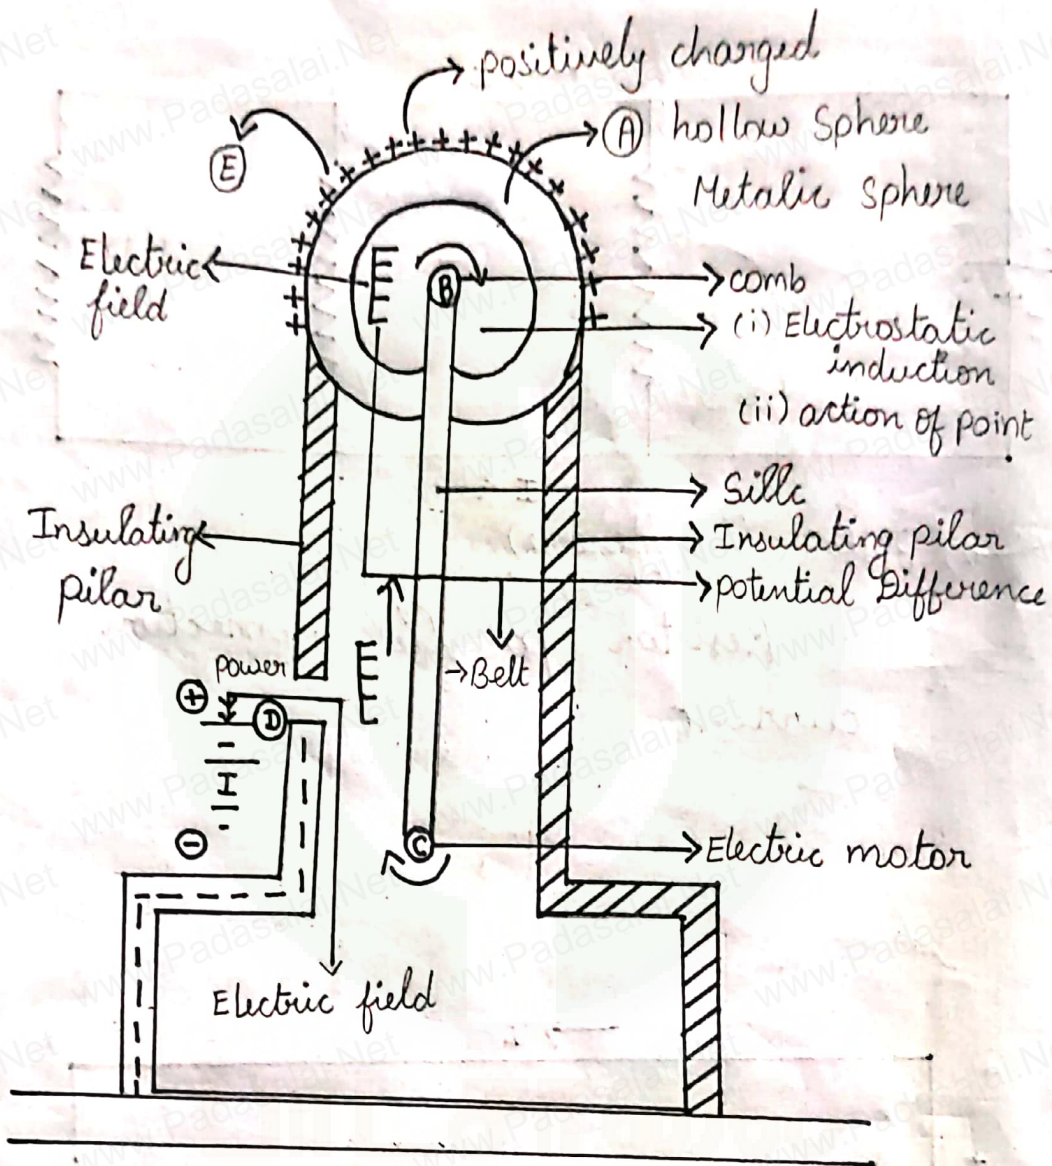 positively charged
(A) hollow Sphere
Metalic Sphere
(E)
Electric
field
(B)
comb
(i) Electrostatic
induction
(ii) action of point
Sillc
Insulating pilar
potential Difference
Insulating
pilar
power
(+)
(D)
I
(-)
→Belt
(C)
Electric motor
Electric field
www.Padasalai.Net